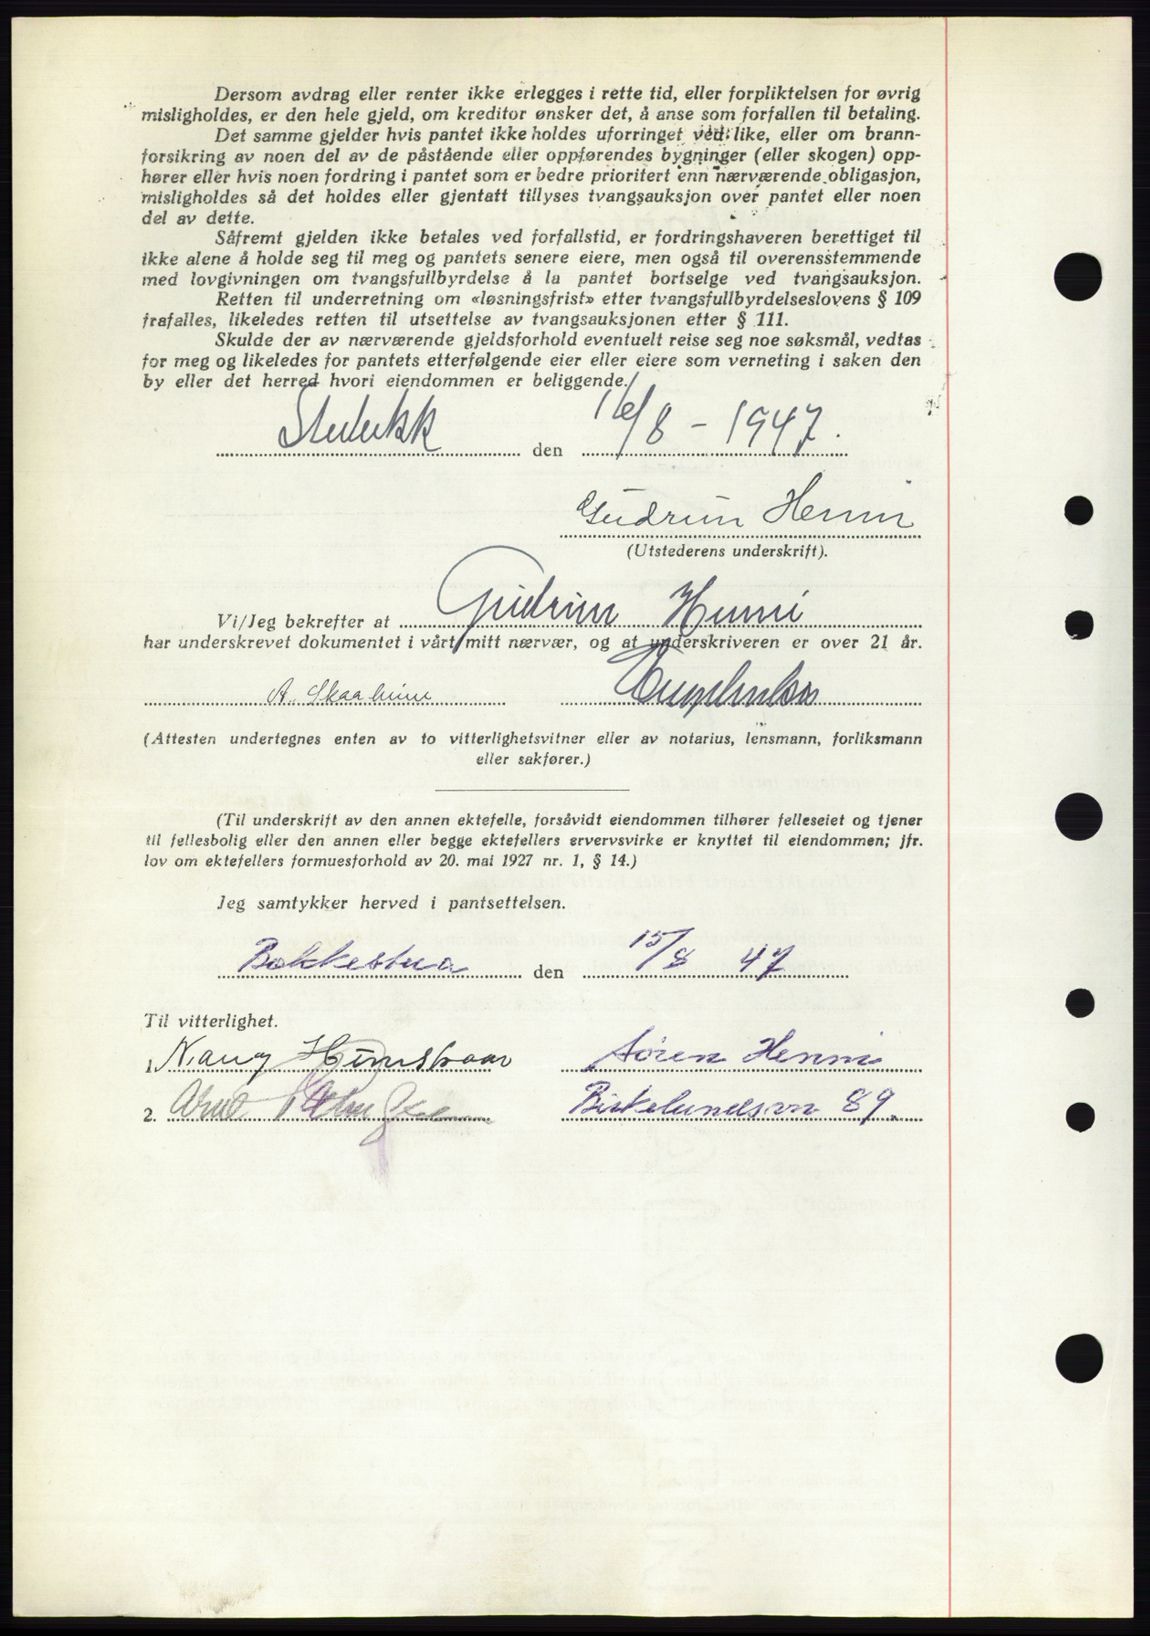 Dersom avdrag eller renter ikke erlegges i rette tid, eller forpliktelsen for øvrig
misligholdes, er den hele gjeld, om kreditor ønsker det, å anse som forfallen til betaling.
Det samme gjelder hvis pantet ikke holdes uforringet ved like, eller om brann-
forsikring av noen del av de påstående eller oppførendes bygninger (eller skogen) opp-
hører eller hvis noen fordring i pantet som er bedre prioritert enn nærværende obligasjon,
misligholdes så det holdes eller gjentatt tillyses tvangsauksjon over pantet eller noen
del av dette.
Såfremt gjelden ikke betales ved forfallstid, er fordringshaveren berettiget til
ikke alene å holde seg til meg og pantets senere eiere, men også til overensstemmende
med lovgivningen om tvangsfullbyrdelse å la pantet bortselge ved tvangsauksjon.
Retten til underretning om «løsningsfrist» etter tvangsfullbyrdelseslovens § 109
frafalles, likeledes retten til utsettelse av tvangsauksjonen etter § 111.
Skulde der av nærværende gjeldsforhold eventuelt reise seg noe søksmål, vedtas
for meg og likeledes for pantets etterfølgende eier eller eiere som verneting i saken den
by eller det herred hvori eiendommen er beliggende.
den 16/8 - 1947.
Gudrun Henni
(Utstederens underskrift).
Vi/Jeg bekrefter at Gudrun Henni
har underskrevet dokumentet i vårt/mitt nærvær, og at underskriveren er over 21 år.
A. Skaaheim
(Attesten undertegnes enten av to vitterlighetsvitner eller av notarius, lensmann, forliksmann
eller sakfører.)
(Til underskrift av den annen ektefelle, forsåvidt eiendommen tilhører felleseiet og tjener
til fellesbolig eller den annen eller begge ektefellers ervervsvirke er knyttet til eiendommen; jfr.
lov om ektefellers formuesforhold av 20. mai 1927 nr. 1, § 14.)
Jeg samtykker herved i pantsettelsen.
Bekkestua den 15/8 47
Til vitterlighet.
1. Søren Henni
2. Birkelundsvn 89.